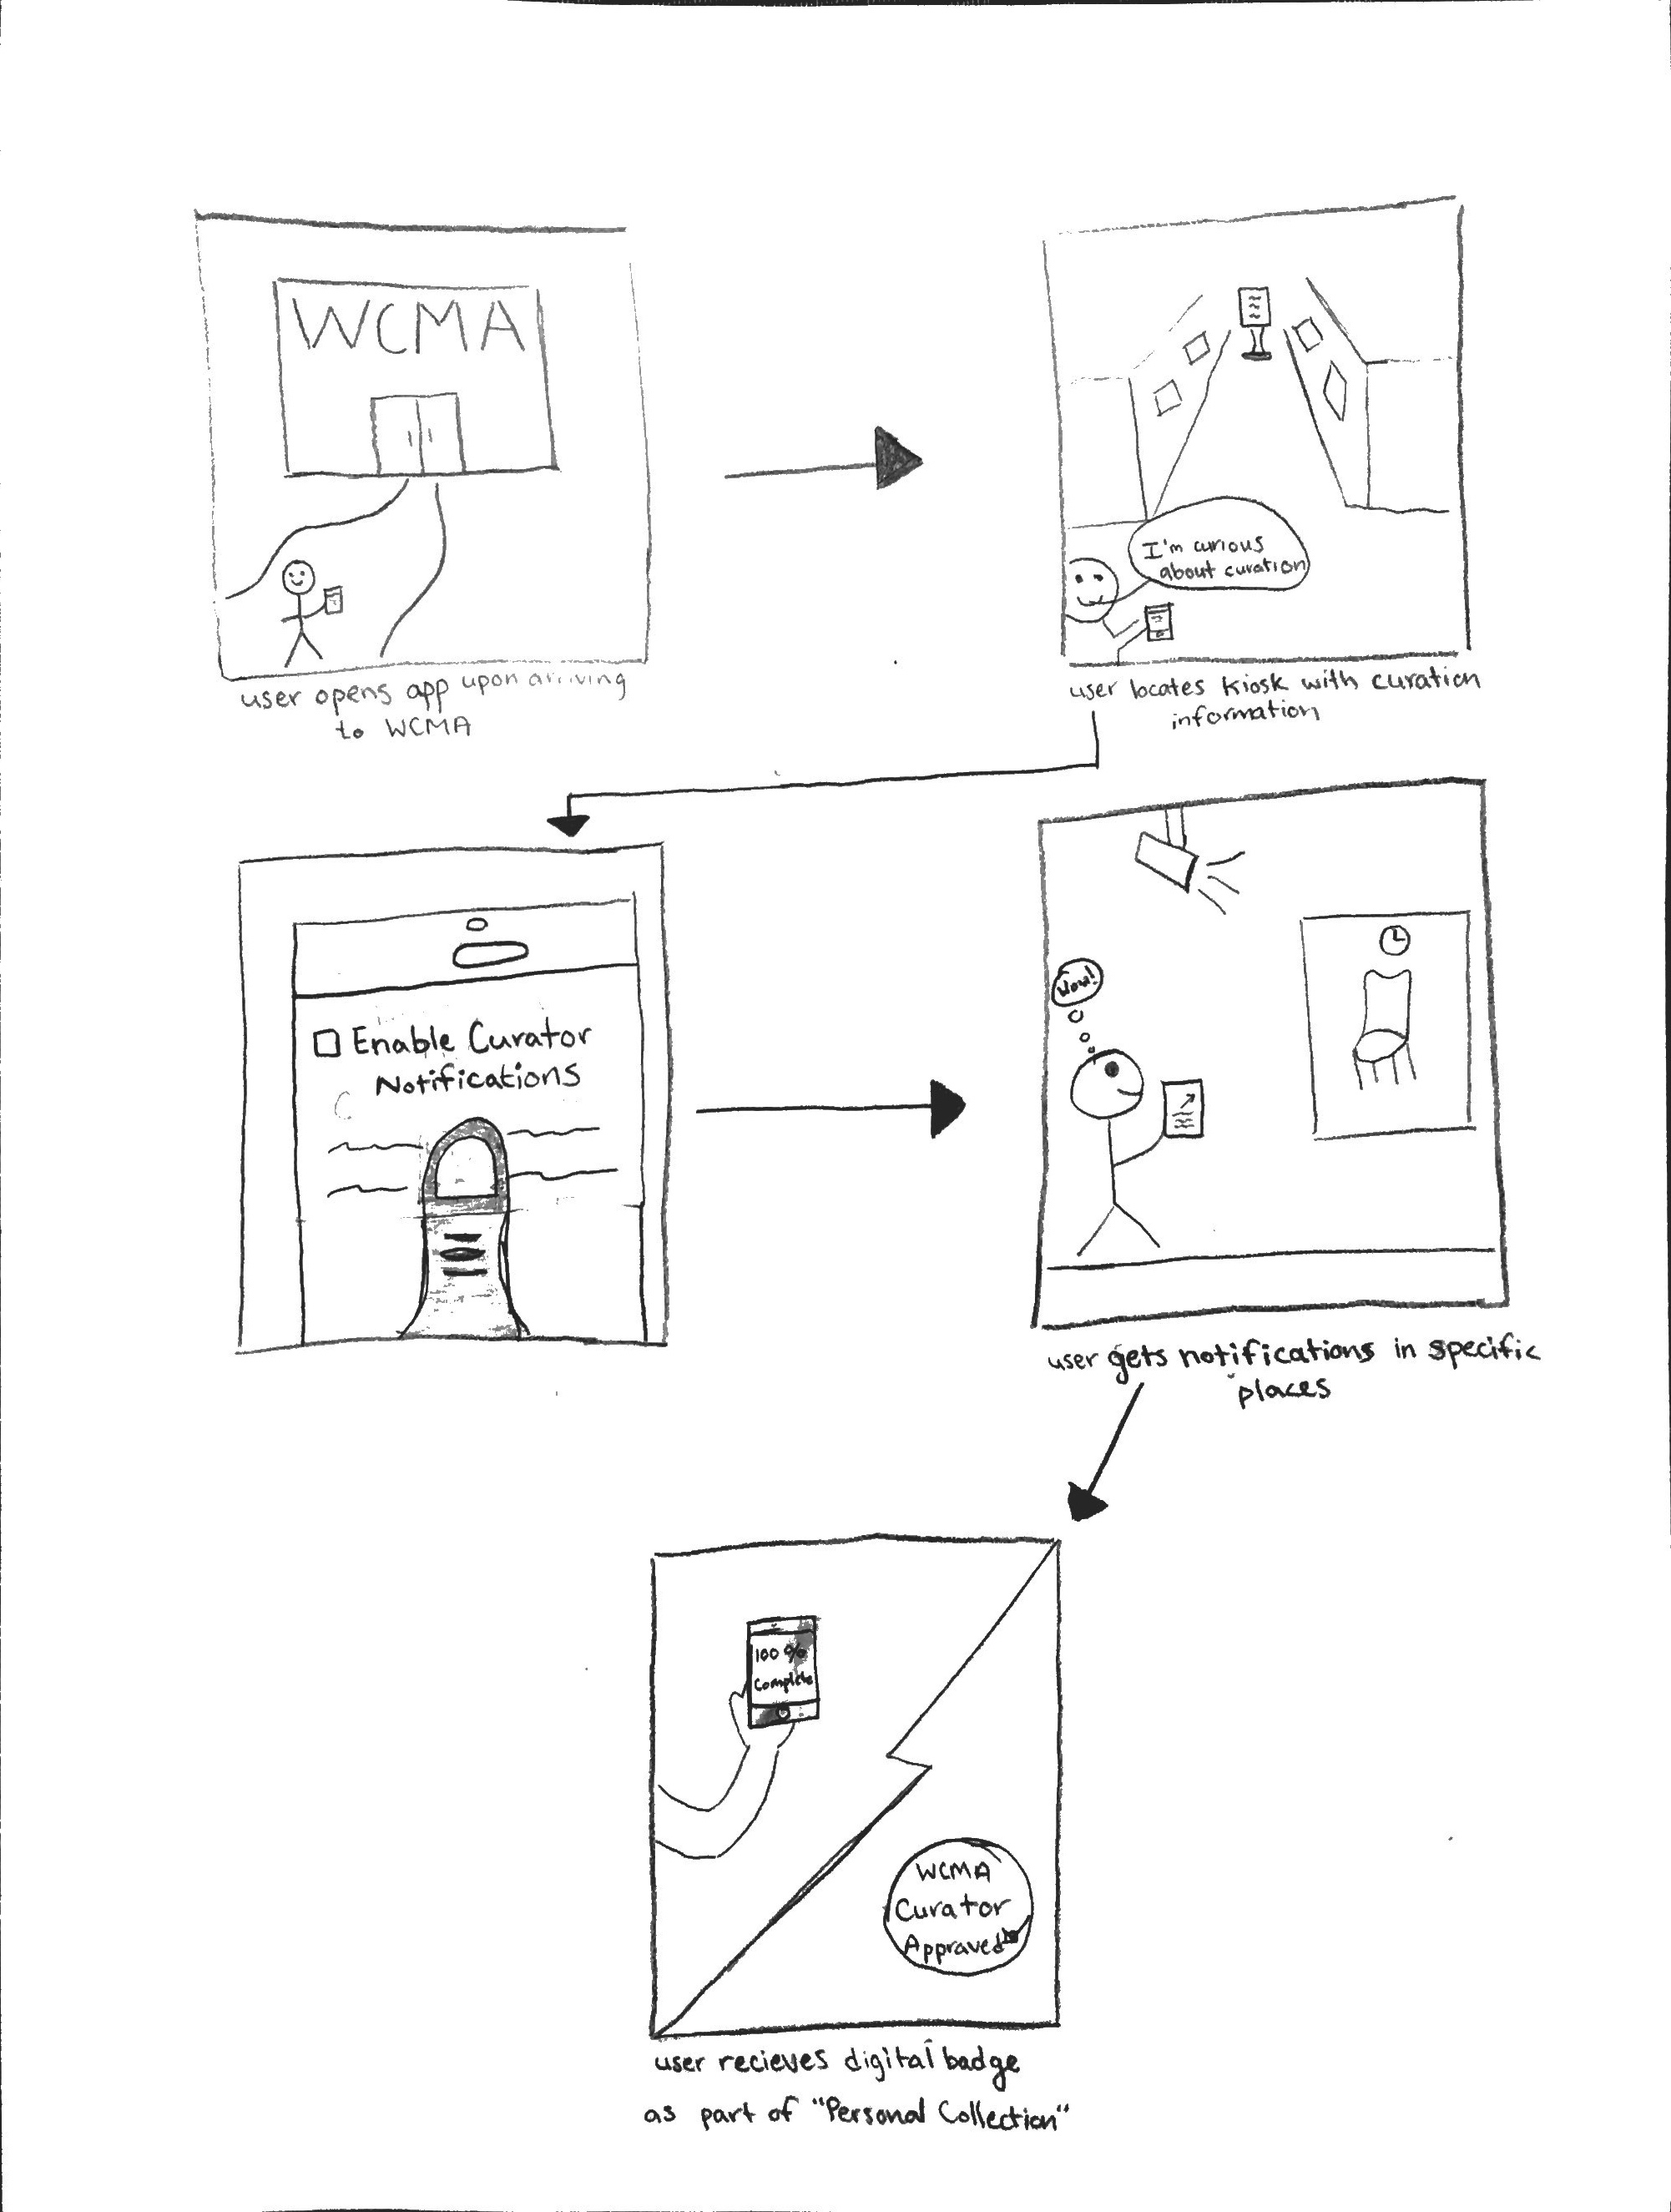 WCMA
user opens app upon arriving
to WCMA
I'm curious
about curation
user locates kiosk with curation
information
Enable Curator
Notifications
Wow!
user gets notifications in specific
places
100%
Complete
WCMA
Curator
Appraved
user recieves digital badge
as part of "Personal Collection"